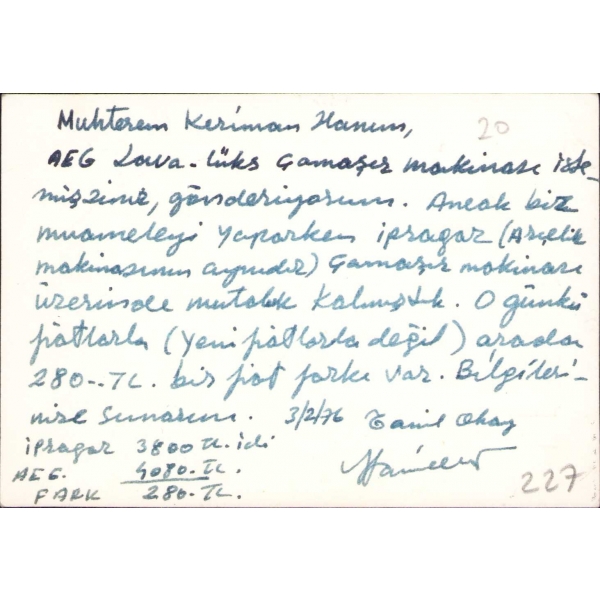 Muhterem Keriman Hanım, 20
AEG Lava-lüks Çamaşır makinası iste-
mişsiniz, gönderiyorum. Ancak biz
muameleyi yaparken ipragaz (Arçelik
makinasının aynıdır) Çamaşır makinası
üzerinde mutabık Kalmıştık. O günkü
fiatlarla (Yeni fiatlarla değil) arada
280-.TL. bir fiat farkı var. Bilgileri-
nize Sunarım. 3/2/76 Okay
ipragaz 3800 TL. idi
AEG. 4080.TL.
FARK 280.TL.
227